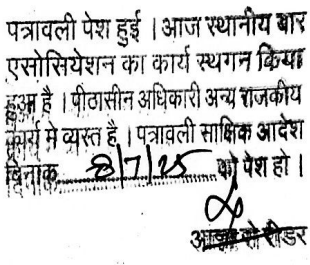 पत्रावली पेश हुई । आज स्थानीय बार
एसोसियेशन का कार्य स्थगन किया
हुआ है । पीठासीन अधिकारी अन्य राजकीय
कार्य मे व्यस्त है । पत्रावली साक्षिक आदेश
दिनाक 8/7/25 को पेश हो ।
आज्ञा से रीडर